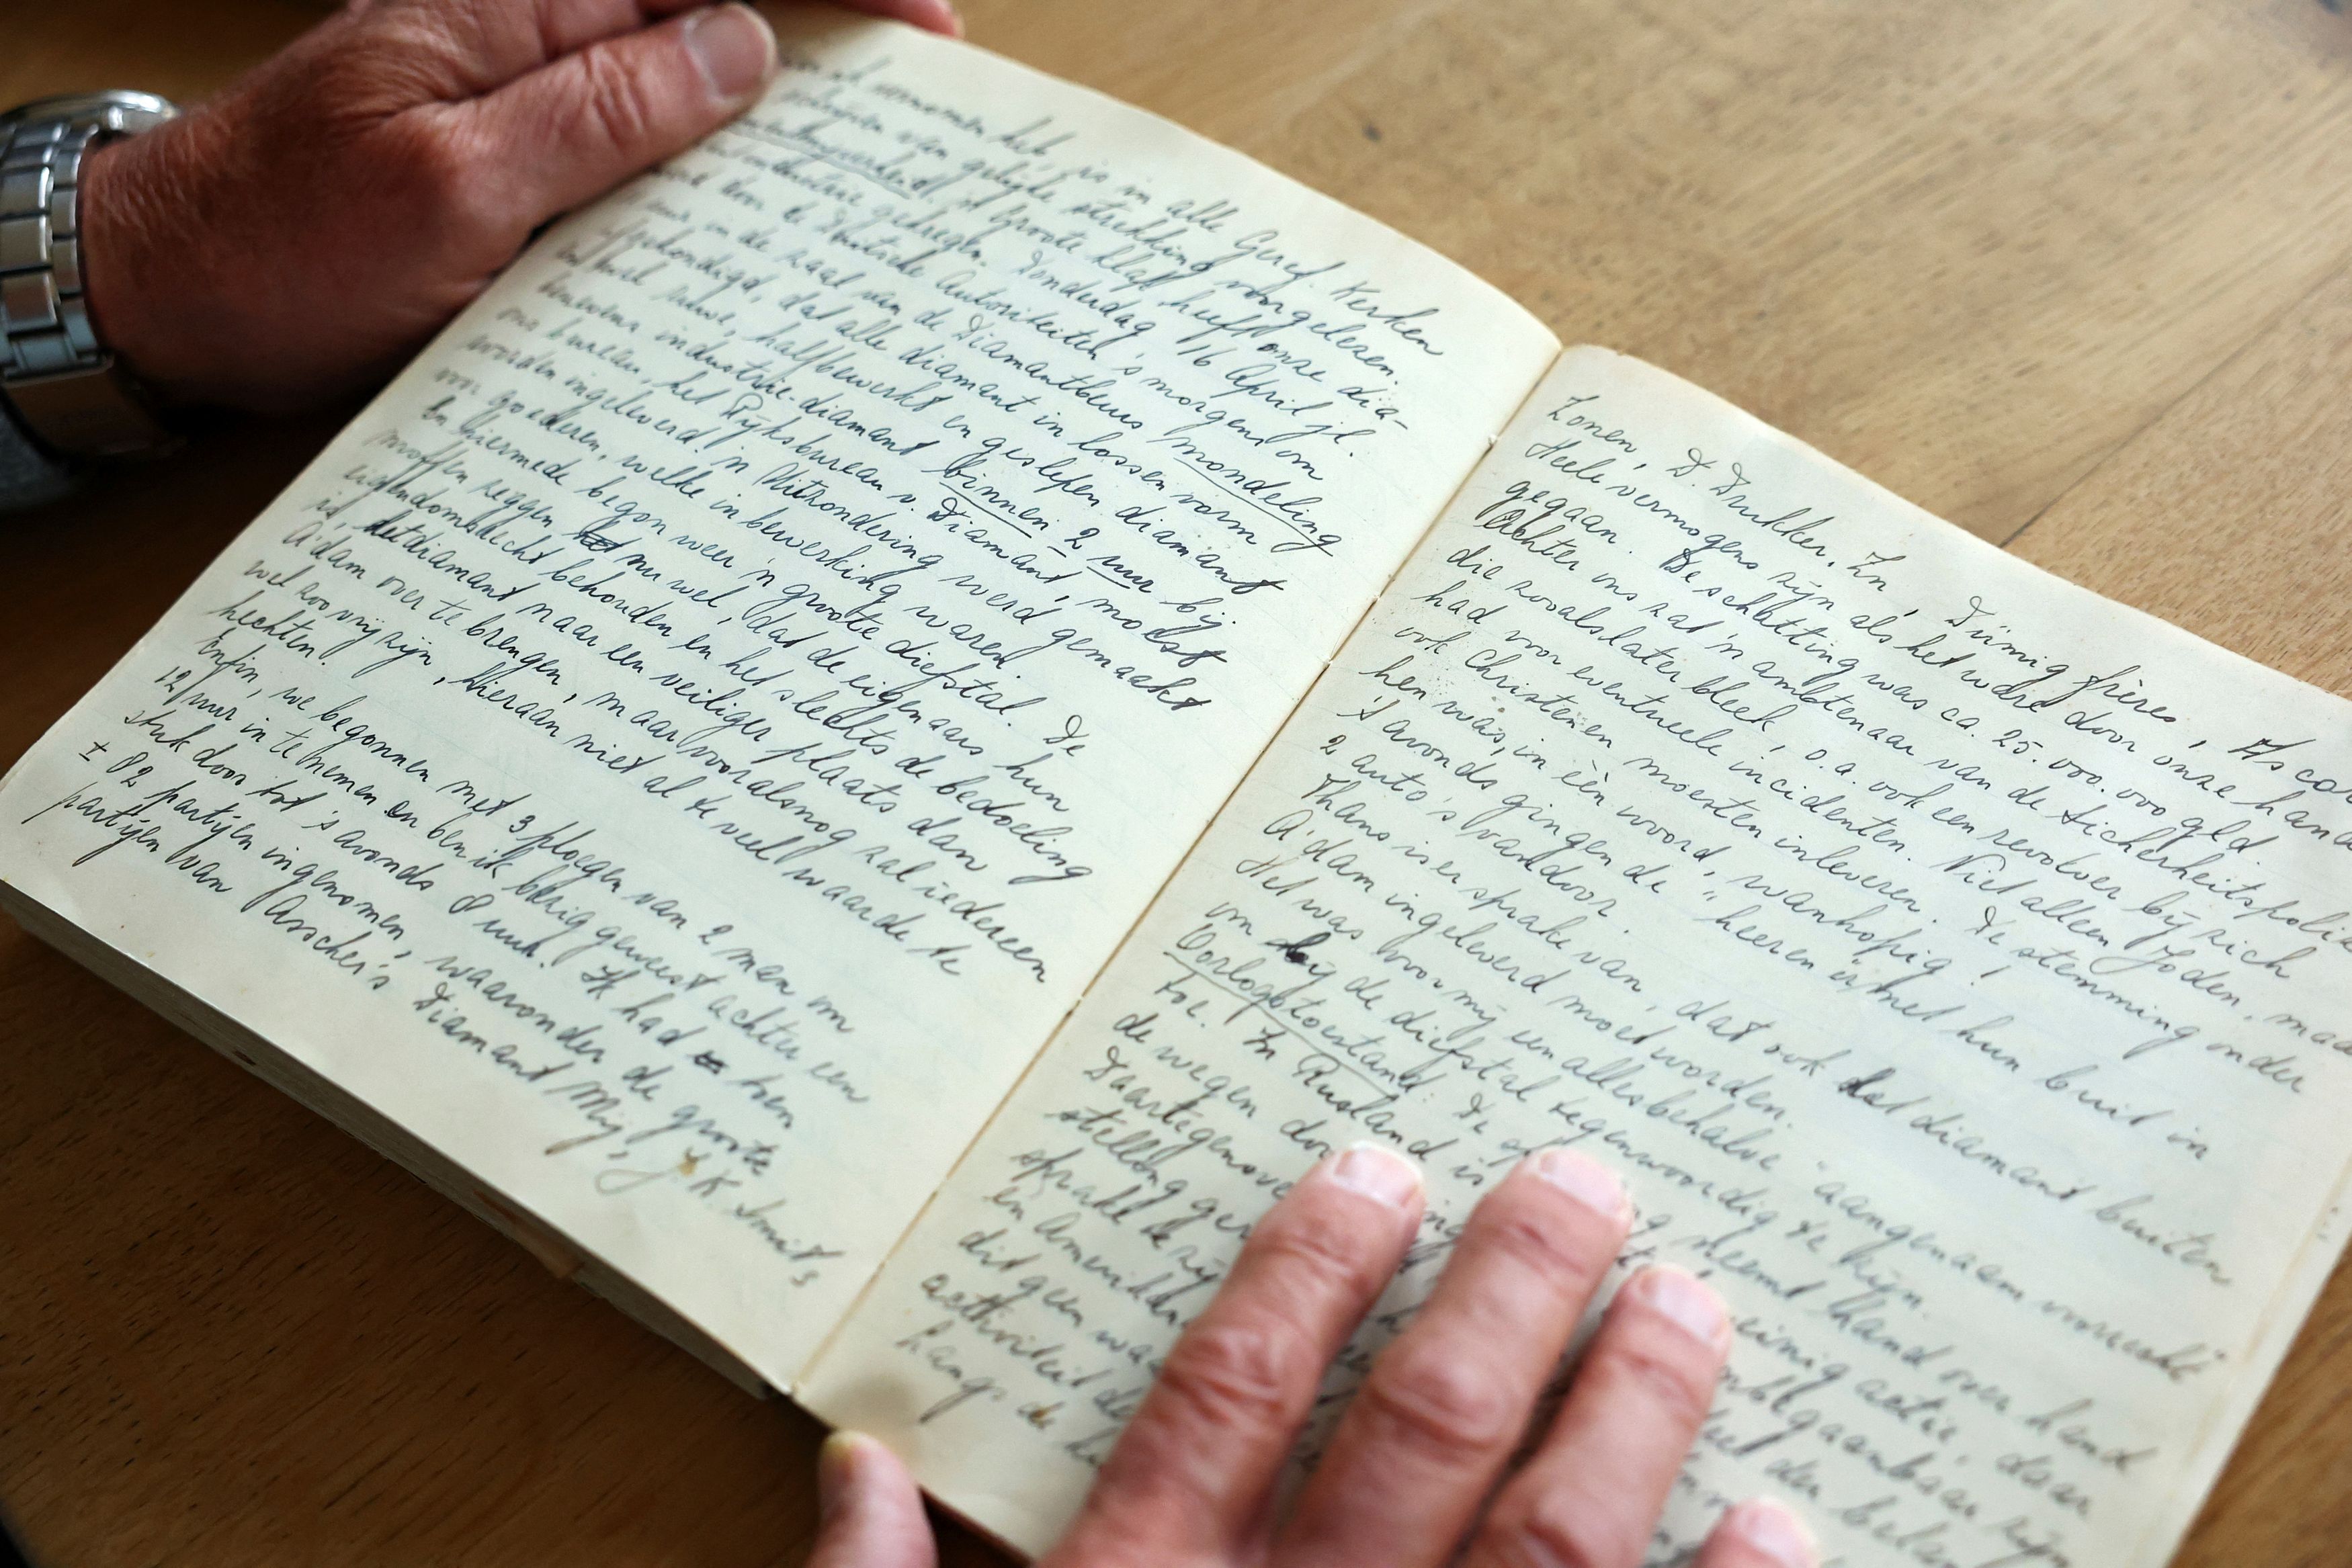 ik vernomen heb, is in alle Geref. Kerken
schrijven van gelijke strekking voorgelezen.
'n Groote klap heeft onze dia-
mantindustrie gekregen. Donderdag 16 April jl.
werd door de Duitsche Autoriteiten 's morgens om
uur in de zaal van de Diamantbeurs mondeling
afgekondigd, dat alle diamant in lossen vorm
ruwe, halfbewerkt en geslepen diamant
benevens industrie-diamant binnen 2 uur bij
ons bureau, het Rijksbureau v. Diamant, moest
worden ingeleverd. 'n Uitzondering werd gemaakt
voor goederen, welke in bewerking waren.
En hiermede begon weer 'n groote diefstal. De
moffen zeggen nu wel, dat de eigenaars hun
eigendomsrecht behouden en het slechts de bedoeling
is, het diamant naar een veiliger plaats dan
A'dam over te brengen, maar vooralsnog zal iedereen
wel zoo vrij zijn, hieraan niet al te veel waarde te
hechten.
Enfin, we begonnen met 3 ploegen van 2 man om
12 uur in te nemen en ben ik bezig geweest achter een
stuk door tot 's avonds 8 uur. Ik had toen
± 82 partijen ingenomen, waaronder de groote
partijen van Asscher's Diamant Mij, J K Smit &
Zonen, D. Drukker, Zn, Dümig frères,
Heele vermogens zijn als het ware door onze hand
gegaan. De schatting was ca. 25.000.000 gld
Achter ons zat 'n ambtenaar van de Sicherheitspolizei
die zooals later bleek, o.a. ook een revolver bij zich
had voor eventueele incidenten. Niet alleen Joden, maar
ook Christenen moesten inleveren. De stemming onder
hen was, in één woord, wanhopig!
's Avonds gingen de "heeren" met hun buit in
2 auto's vandoor.
Thans is er sprake van, dat ook het diamant buiten
A'dam ingeleverd moet worden.
Het was voor mij een allesbehalve "aangenaam voorrecht"
om bij de diefstal tegenwoordig te zijn.
Oorlogstoestand: De neemt hand over hand
toe. In Rusland is weinig actie, daar
de wegen door onbegaanbaar zijn
Daartegenover
stelling
sprake
en Amerikaan
dit geen
activiteit de
Langs de